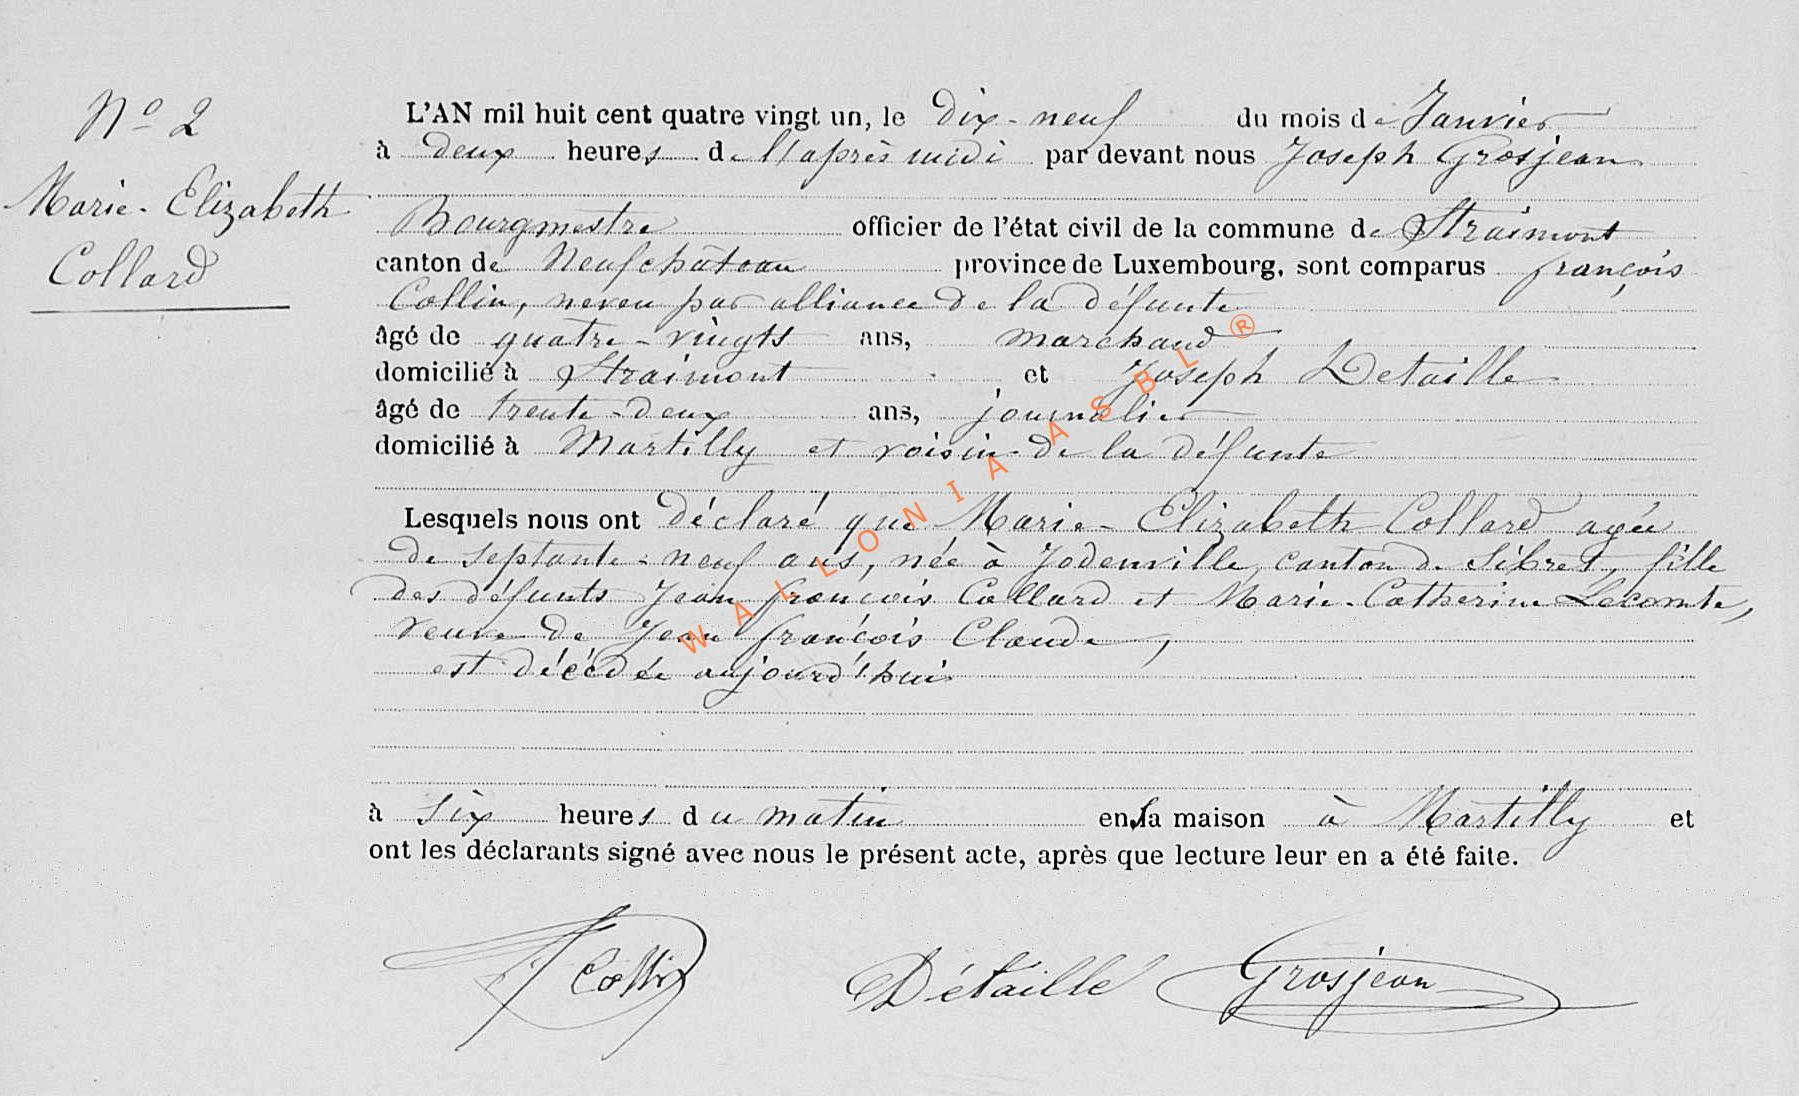 Nº 2
Marie-Elizabeth
Collard
L'AN mil huit cent quatre vingt un, le dix-neuf du mois de Janvier
à deux heures de l'après midi par devant nous Joseph Grosjean
Bourgmestre officier de l'état civil de la commune de Straimont
canton de Neufchâteau province de Luxembourg, sont comparus françois
Collin, neveu par alliance de la défunte
âgé de quatre-vingts ans, marchand
domicilié à Straimont et Joseph Detaille
âgé de trente-deux ans, journalier
domicilié à Martilly et voisin de la défunte
Lesquels nous ont déclaré que Marie-Elizabeth Collard agée
de septante-neuf ans, née à Jodenville, canton de Sibret, fille
des défunts Jean françois Collard et Marie-Catherine Lecomte,
veuve de Jean françois Claude,
est décédée aujourd'hui
à six heures du matin en sa maison à Martilly et
ont les déclarants signé avec nous le présent acte, après que lecture leur en a été faite.
Collin Détaille Grosjean
WALLONIA ASBL ®